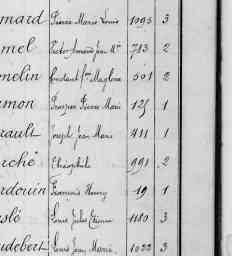 mard Pierre Marie Louis 1095 3
mel Victor Amand Jean Mie 713 2
melin Constant Magloire 501 2
mon François Pierre Marie 125 1
rault Joseph Jean Marie 411 1
rché Théophile 991 2
rdouin François Henry 19 1
slé Louis Jules Etienne 1180 3
udebert Louis Jean Marie 1022 3